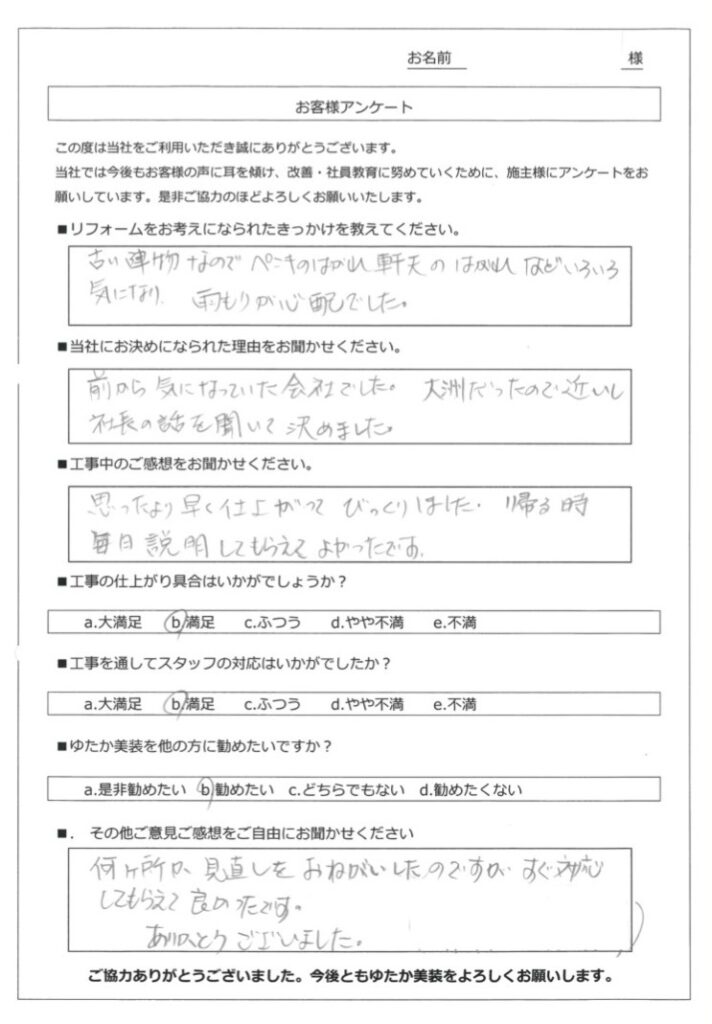 お名前 様
お客様アンケート
この度は当社をご利用いただき誠にありがとうございます。
当社では今後もお客様の声に耳を傾け、改善・社員教育に努めていくために、施主様にアンケートをお
願いしています。是非ご協力のほどよろしくお願いいたします。
■リフォームをお考えになられたきっかけを教えてください。
古い建物なので ペンキのはがれ 軒天の はがれ などいろいろ
気になり、雨もりが心配でした。
■当社にお決めになられた理由をお聞かせください。
前から気になっていた会社でした。 大洲だったので近いし
社長の話を聞いて決めました。
■工事中のご感想をお聞かせください。
思ったより早く仕上がって びっくりしました。 帰る時
毎日説明してもらえて よかったです。
■工事の仕上がり具合はいかがでしょうか？
a.大満足 b.満足 c.ふつう d.やや不満 e.不満
■工事を通してスタッフの対応はいかがでしたか？
a.大満足 b.満足 c.ふつう d.やや不満 e.不満
■ゆたか美装を他の方に勧めたいですか？
a.是非勧めたい b.勧めたい c.どちらでもない d.勧めたくない
■． その他ご意見ご感想をご自由にお聞かせください
何ヶ所か、見直しを おねがいしたのですが、すぐ対応
してもらえて 良かったです。
ありがとうございました。
ご協力ありがとうございました。今後ともゆたか美装をよろしくお願いします。